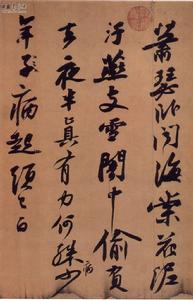 蕭瑟卧聞海棠花泥
汙燕支雪闇中偷負
去夜半真有力何殊少
病
年子病起頭已白